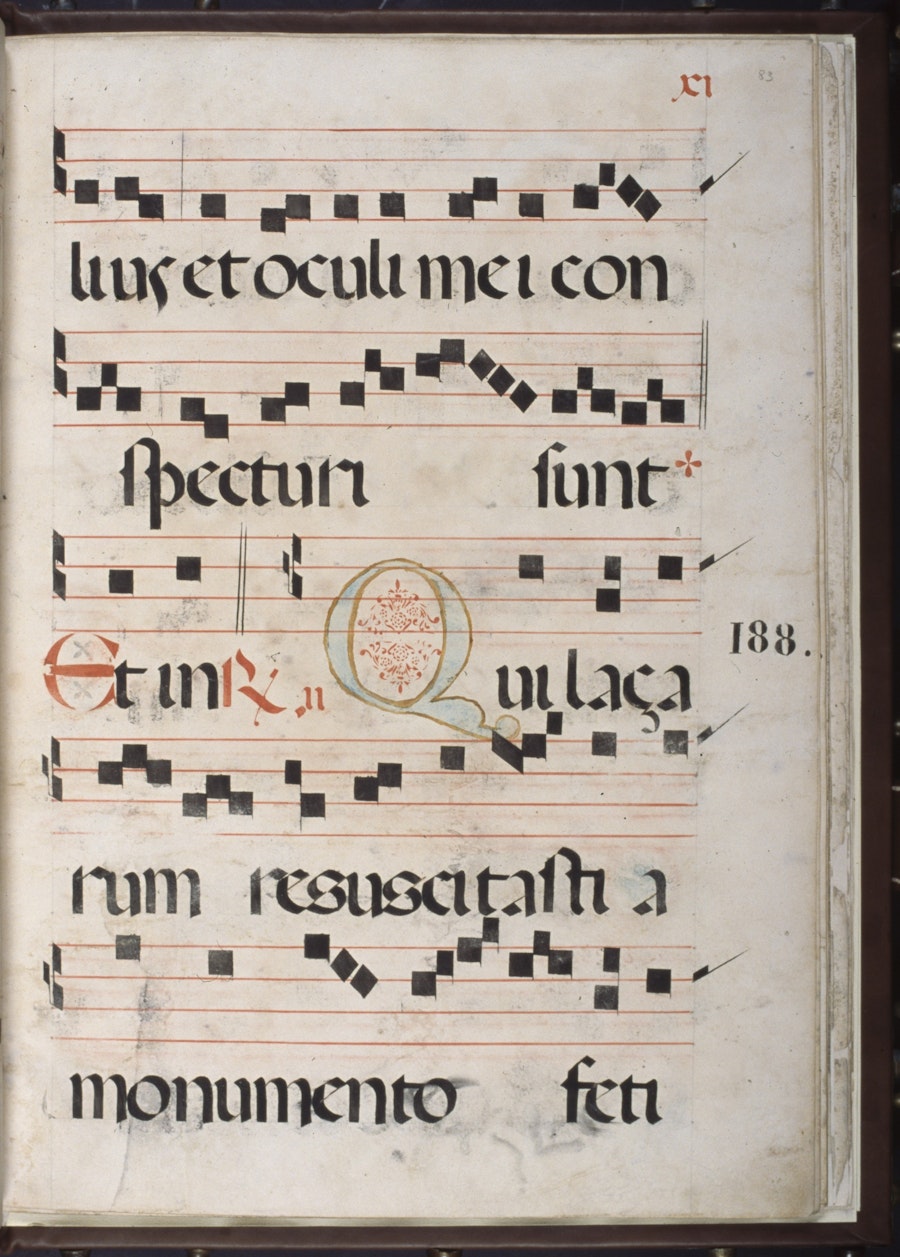 xı 83
lius et oculi mei con
specturi sunt
Et in R. ii Qui laça 188.
rum resuscitasti a
monumento feti